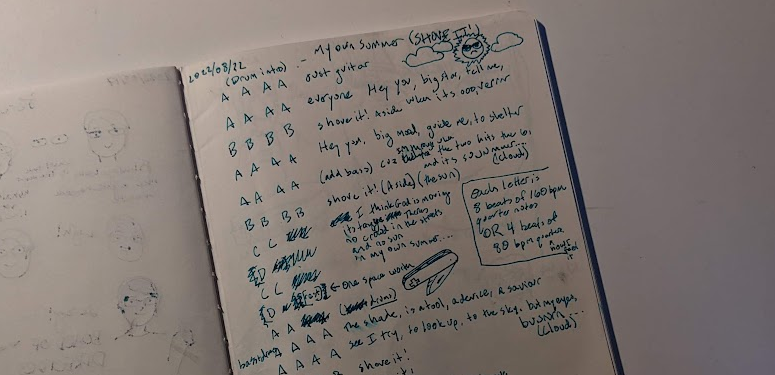 2022/08/22
My own Summer (SHOVE IT!)
(Drum intro)
A A A A just guitar
A A A A everyone Hey you, big star, tell me,
B B B B shove it! Aside when its ooovverrrr
A A A A Hey you, big mood, guide me, to shelter
A A A A (add bass) cuz im through when the two hits the 6,
and its suuummer... (cloud)
B B B B shove it! (Aside) (the sun)
C C I think God is moving
its tongue Theres
no crowd in the streets
and no sun
in my own summer....
D
C C
D ← One space worth
(drums)
Each letter is
8 beats of 160 bpm
quarter notes
OR 4 beats of
80 bpm quarter
A A
bass+drums A A A A the shade, is a tool, a device, a saviour
A A A A see I try, to look up, to the sky, but my eyes,
burnnn...
(cloud)
B shove it!